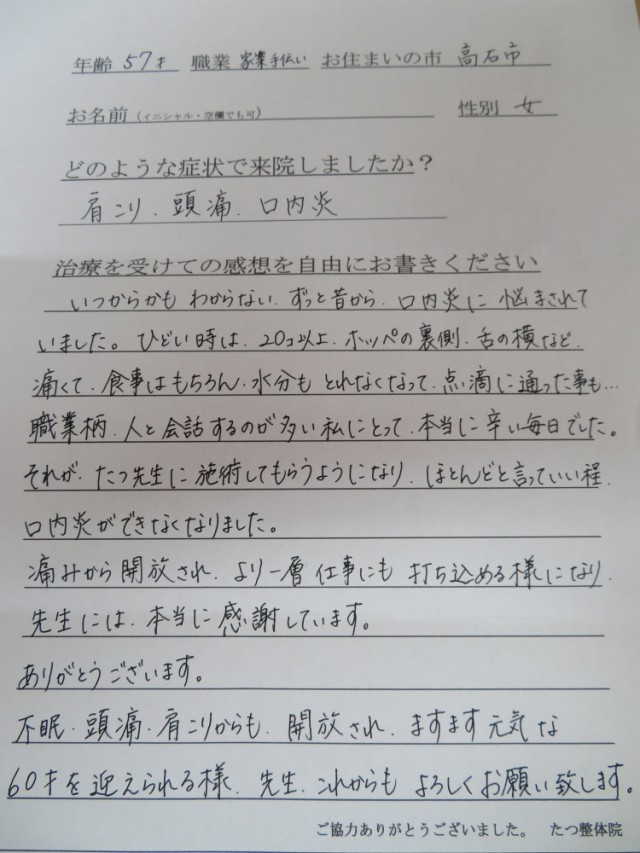 年齢 57才 職業 家業手伝い お住まいの市 高石市
お名前(イニシャル・空欄でも可) 性別 女
どのような症状で来院しましたか?
肩こり、頭痛、口内炎
治療を受けての感想を自由にお書きください
いつからかも わからない、ずっと昔から、口内炎に悩まされて
いました。ひどい時は、20コ以上、ホッペの裏側、舌の横など、
痛くて、食事はもちろん、水分も とれなくなって、点滴に通った事も…
職業柄、人と会話するのが多い私にとって、本当に辛い毎日でした。
それが、たつ先生に施術してもらうようになり、ほとんどと言っていい程、
口内炎ができなくなりました。
痛みから開放され、より一層仕事にも打ち込める様になり、
先生には、本当に感謝しています。
ありがとうございます。
不眠、頭痛、肩こりからも、開放され、ますます元気な
60才を迎えられる様、先生、これからも よろしくお願い致します。
ご協力ありがとうございました。 たつ整体院